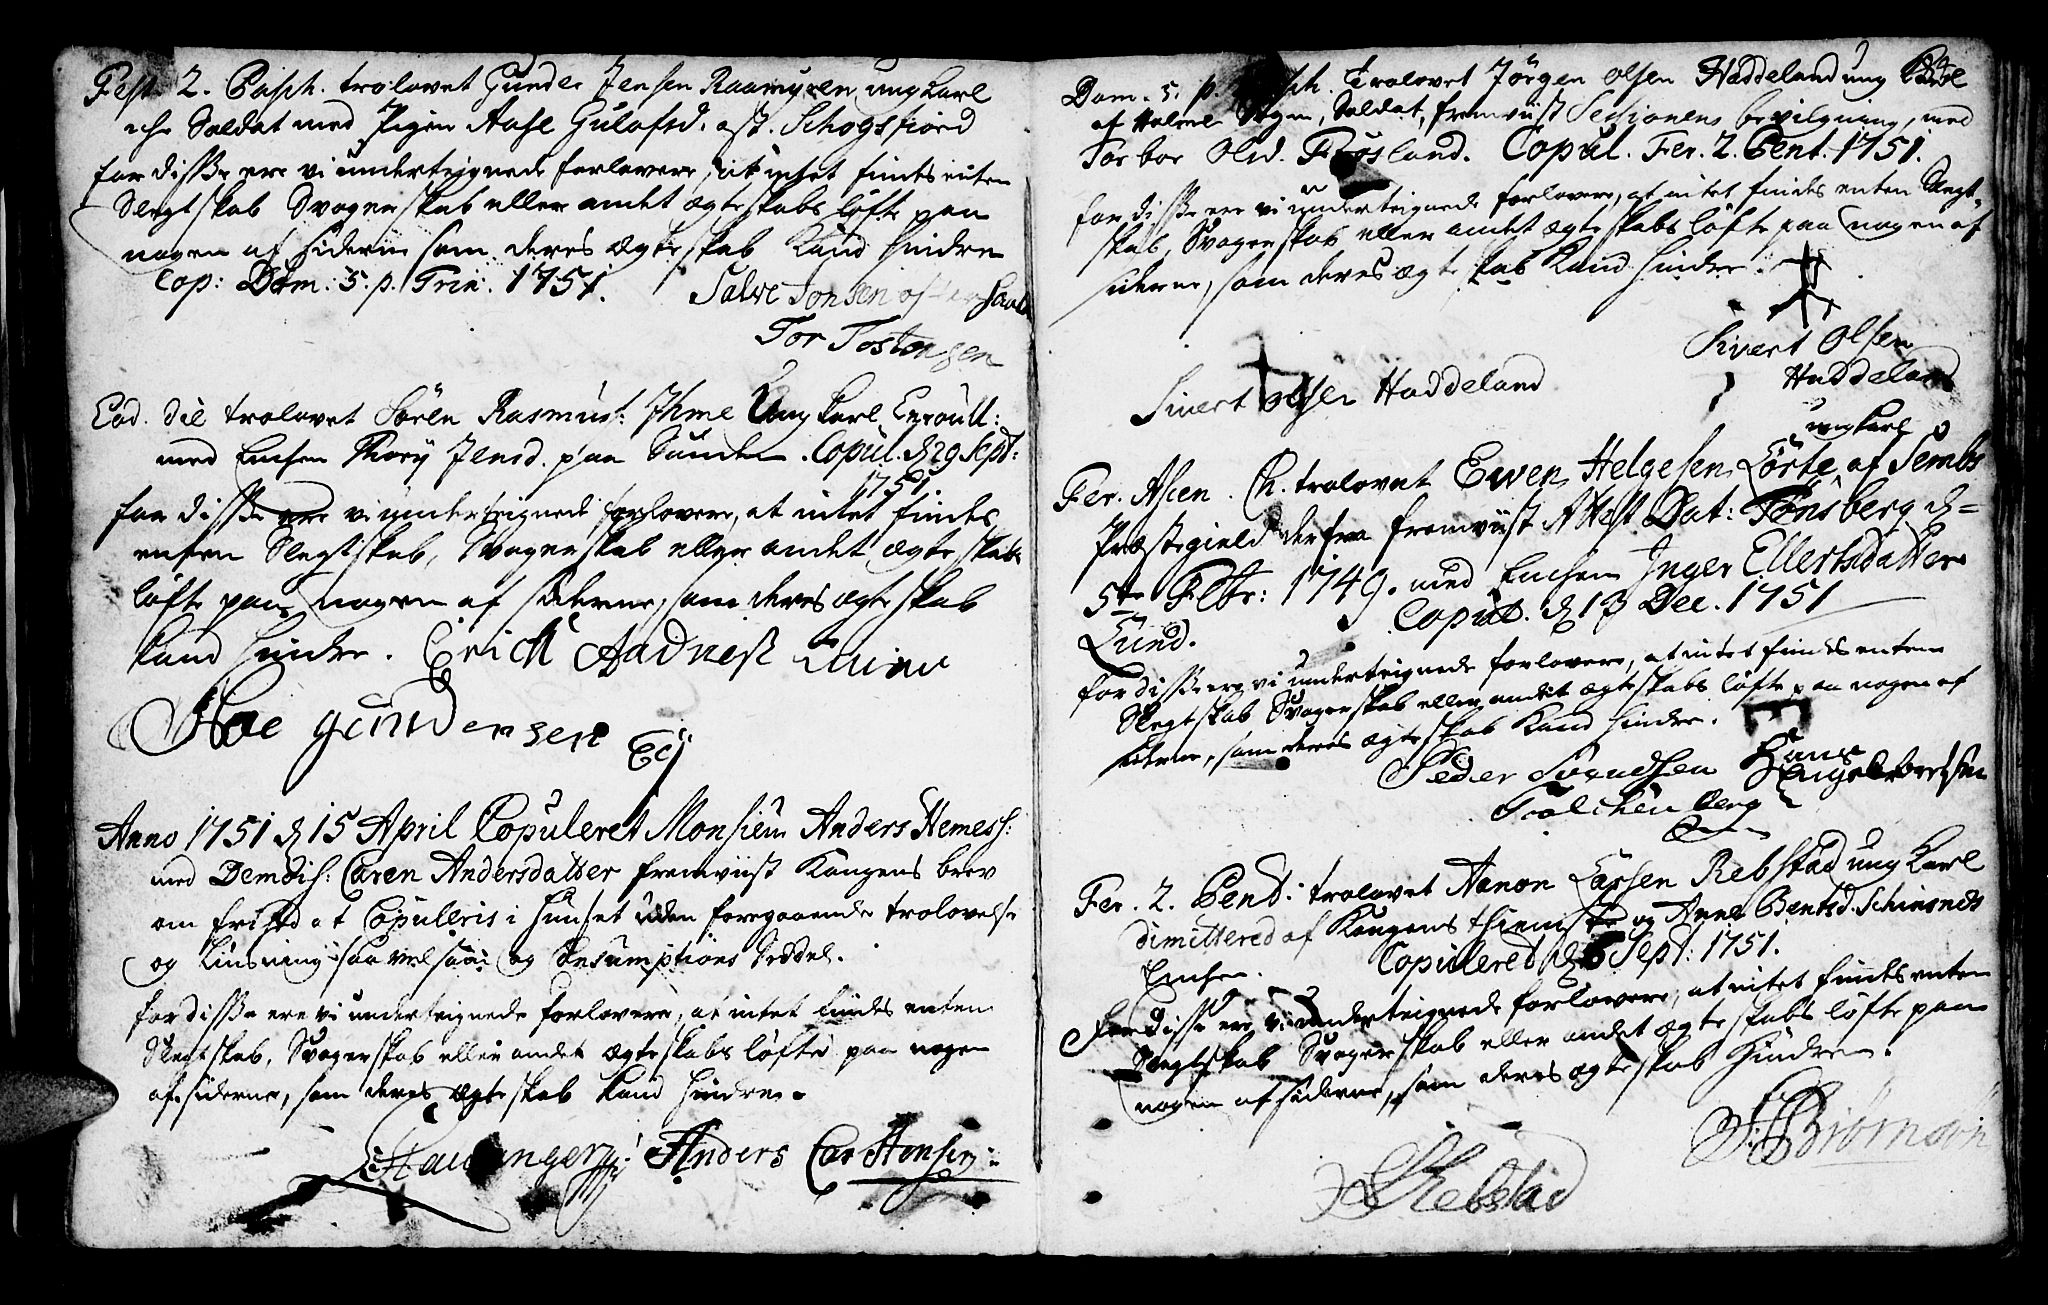 Fest. 2. Pasch. trolovet Gunder Jensen Raamyren ungkarl
iche Soldat med Pigen Aase Gulofsd. ost. Schogsfiord
for disse ere vi undertegnede forlovere, at intet findes enten
Slegtskab Svogerskab eller andet ægteskabs løfte paa
nogen af siderne som deres Ægteskab kand hindre
Cop: Dom: 5. p. Trin. 1751. Salve Jonsen
Tor Tostensen
Eod. die trolovet Sören Rasmus: Ihme Ungkarl Enroull:
med Enchen Mary Jensd. paa Sanden. Copul. d 29 Sept:
1751
for disse ere vi undertegnede forlovere, at intet findes
enten Slegtskab, Svogerskab eller andet Ægteskabs
løfte paa nogen af siderne, som deres ægteskab
kand hindre. Erich Aadneß
Roe gundersen
Ecij
Anno 1751 d 15 April Copuleret Monsieur Anders Nemess:
med Demois: Caren Andersdatter fremviist Kongens brev
om frihed at Copuleris i Huuset uden foregaaende trolovelse
og Liusning saavelsom og Consumptions Seddel.
for disse ere vi undertegnede forlovere, at intet findes enten
Slegtskab, Svogerskab eller andet ægteskabs løfte paa nogen
af siderne, som deres Ægteskab kand hindre.
Anders Carstensen
Dom. 5. p. Pasch. Trolovet Jørgen Olsen Haddeland ung Karl
af Halsne Sogn, Soldat, fremviist Sessionens bevilgning, med
Torbor Olsd. Frøsland. Copul. Fer. 2. Pent. 1751.
for disse ere vi undertegnede forlovere, at intet findes enten Slegt-
skab, Svogerskab eller andet ægteskabs løfte paa nogen af
siderne, som deres ægteskab kand hindre.
Sivert Olsen
Haddeland
Sivert Olsen Haddeland
ungkarl
Fer. Ascen. Ch. trolovet Ewen Helgesen Lörte af Sembs
Præstegield derfra fremviist Attest Dat: Tönsberg d=
5te Febr: 1749. med Enchen Inger Ellertsdatter
Lund. Copul. d 13 Dec. 1751
for disse ere vi undertegnede forlovere, at intet findes enten
Slegtskab Svogerskab eller andet ægteskabs løfte paa nogen af
siderne, som deres ægteskab kand hindre.
Peder Svendsen Hans
Engelbretsen
Fer. 2. Pent: trolovet Aanon Larsen Rebstad ung Karl
dimittered af Kongens thieneste og Anne Bentsd. Schiesnes
Enchen. Copulered d 6 Sept: 1751.
for disse ere vi undertegnede forlovere, at intet findes enten
Slegtskab Svogerskab eller andet ægteskabs løfte paa
nogen af siderne, som deres ægteskab hindre.
Biörnsön
Rebstad